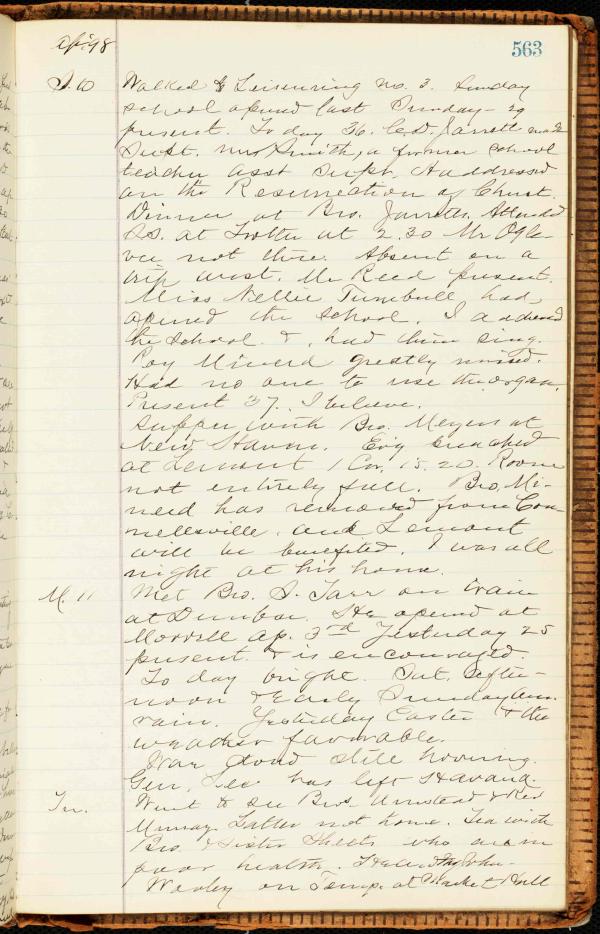 563
Ap. '98
S. 10 Walked to Leisenring no. 3. Sunday
school opened last Sunday - 29
present. To day 36. C.D. Jarrett made
Supt. Mrs Smith, a former school
teacher asst Supt. I addressed
on the Resurrection of Christ.
Dinner at Bro. Jarretts. Attended
S.S. at Trotter at 2.30 Mr Ogle-
vee not there. Absent on a
trip west. Mr Reed present.
Miss Nellie Turnbull had
opened the school. I addressed
the school & had them sing.
Roy Minerd greatly missed.
Had no one to use the organ.
Present 37. I believe.
Supper with Bro. Meyers at
New Haven. Ev'g preached
at Lemont 1 Cor. 15.20. Room
not entirely full. Bro. Mi-
nerd has removed from Con-
nellsville, and Lemont
will be benefited. I was all
night at his home.
M. 11 Met Bro. S. Tarr on train
at Dunbar. He opened at
Morrell Ap. 3rd Yesterday 25
present & is encouraged.
To day bright. Sat. after-
noon & Early Sunday
rain. Yesterday Easter & the
weather favorable.
War cloud still hovering.
Gen. Lee has left Havana.
Tu. Went to see Bros. Umstead & Red
Murray. Latter not home. Tea with
Bro. & Sister Sheets who are in
poor health. Heard John
Worley on Temp. at Market Hall